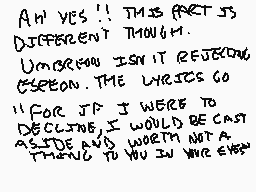 AH YES !! THIS PART IS
DIFFERENT THOUGH.
UMBREON ISN'T REJECTING
ESPEON. THE LYRICS GO
"FOR IF I WERE TO
DECLINE, I WOULD BE CAST
ASIDE AND WORTH NOT A
THING TO YOU IN YOUR EYES"